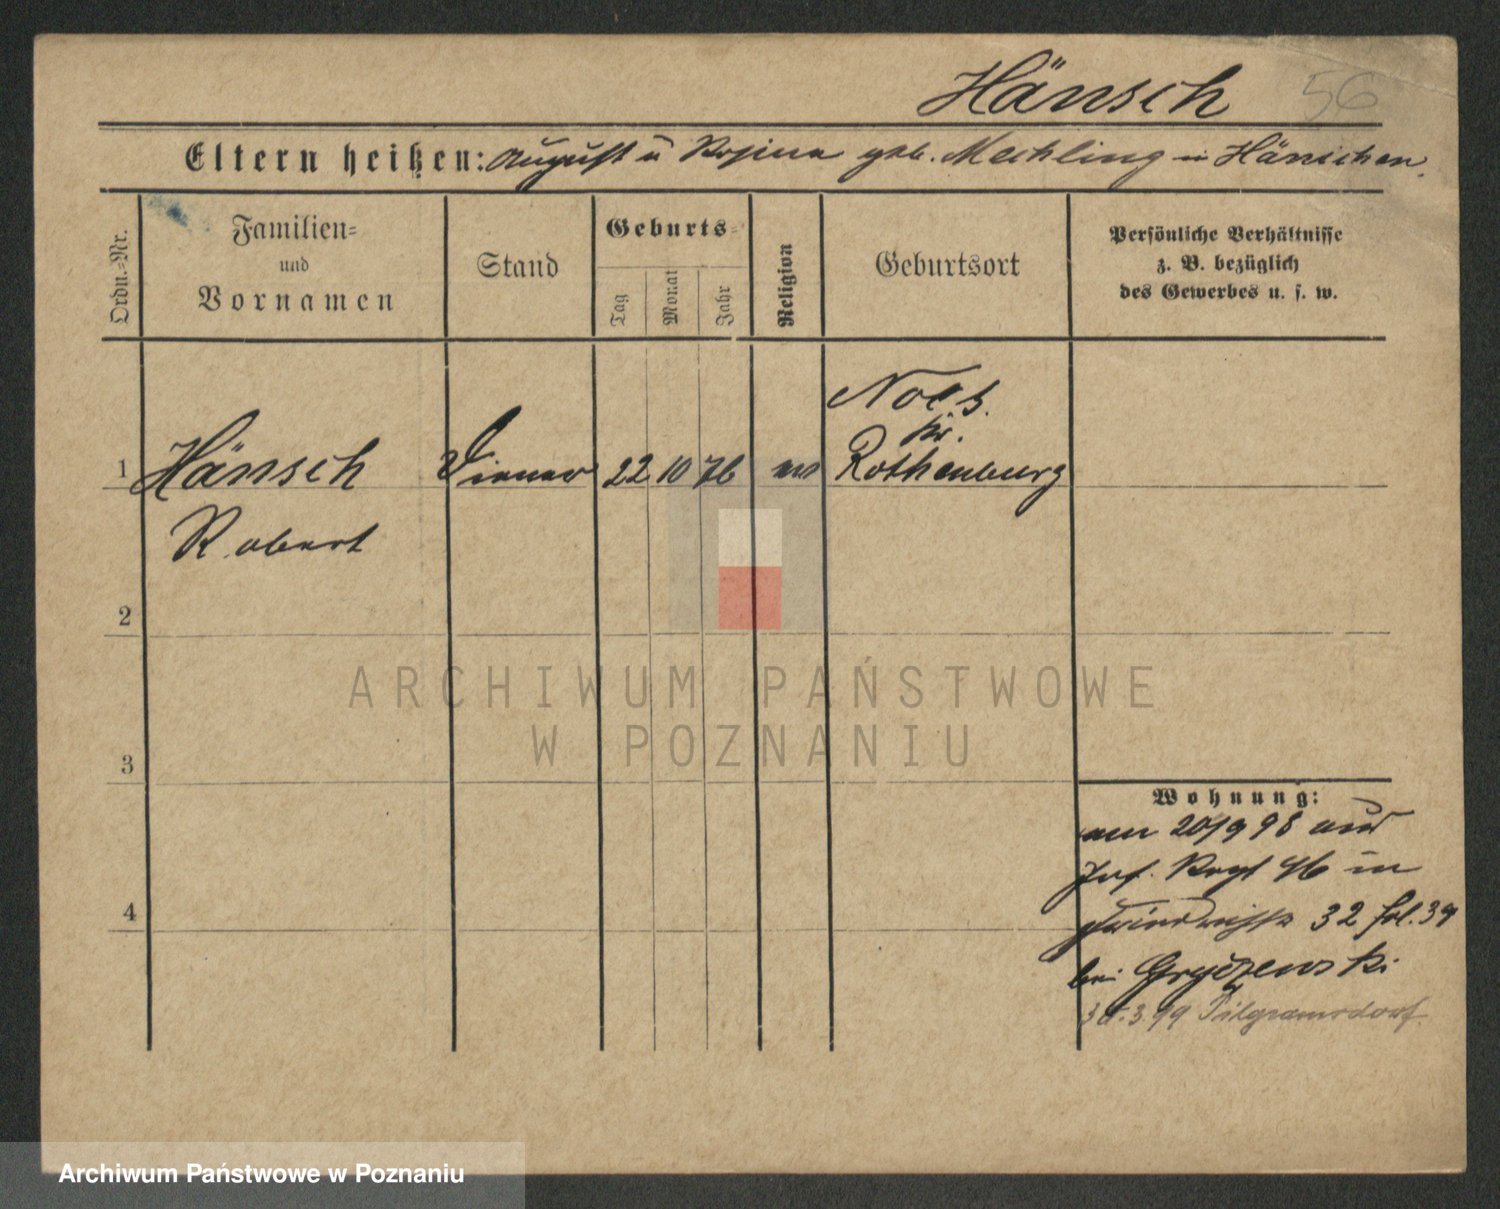 Hänsch 56
Eltern heißen: August u Rosina geb. Mechling in Hänichen.
Ordn.=Nr.
Familien=
und
Vornamen
Stand
Geburts=
Tag
Monat
Jahr
Religion
Geburtsort
Persönliche Verhältnisse
z. B. bezüglich
des Gewerbes u. s. w.
Noes
Kr.
1 Hänsch Diener 22 10 76 ev Rothenburg
Robert
2
3
4
Wohnung:
am 20/9 98 aus
Inf. Regt 46 in
32 fol. 39
bei
30.3.99 Pilgramsdorf
ARCHIWUM PAŃSTWOWE
W POZNANIU
Archiwum Państwowe w Poznaniu